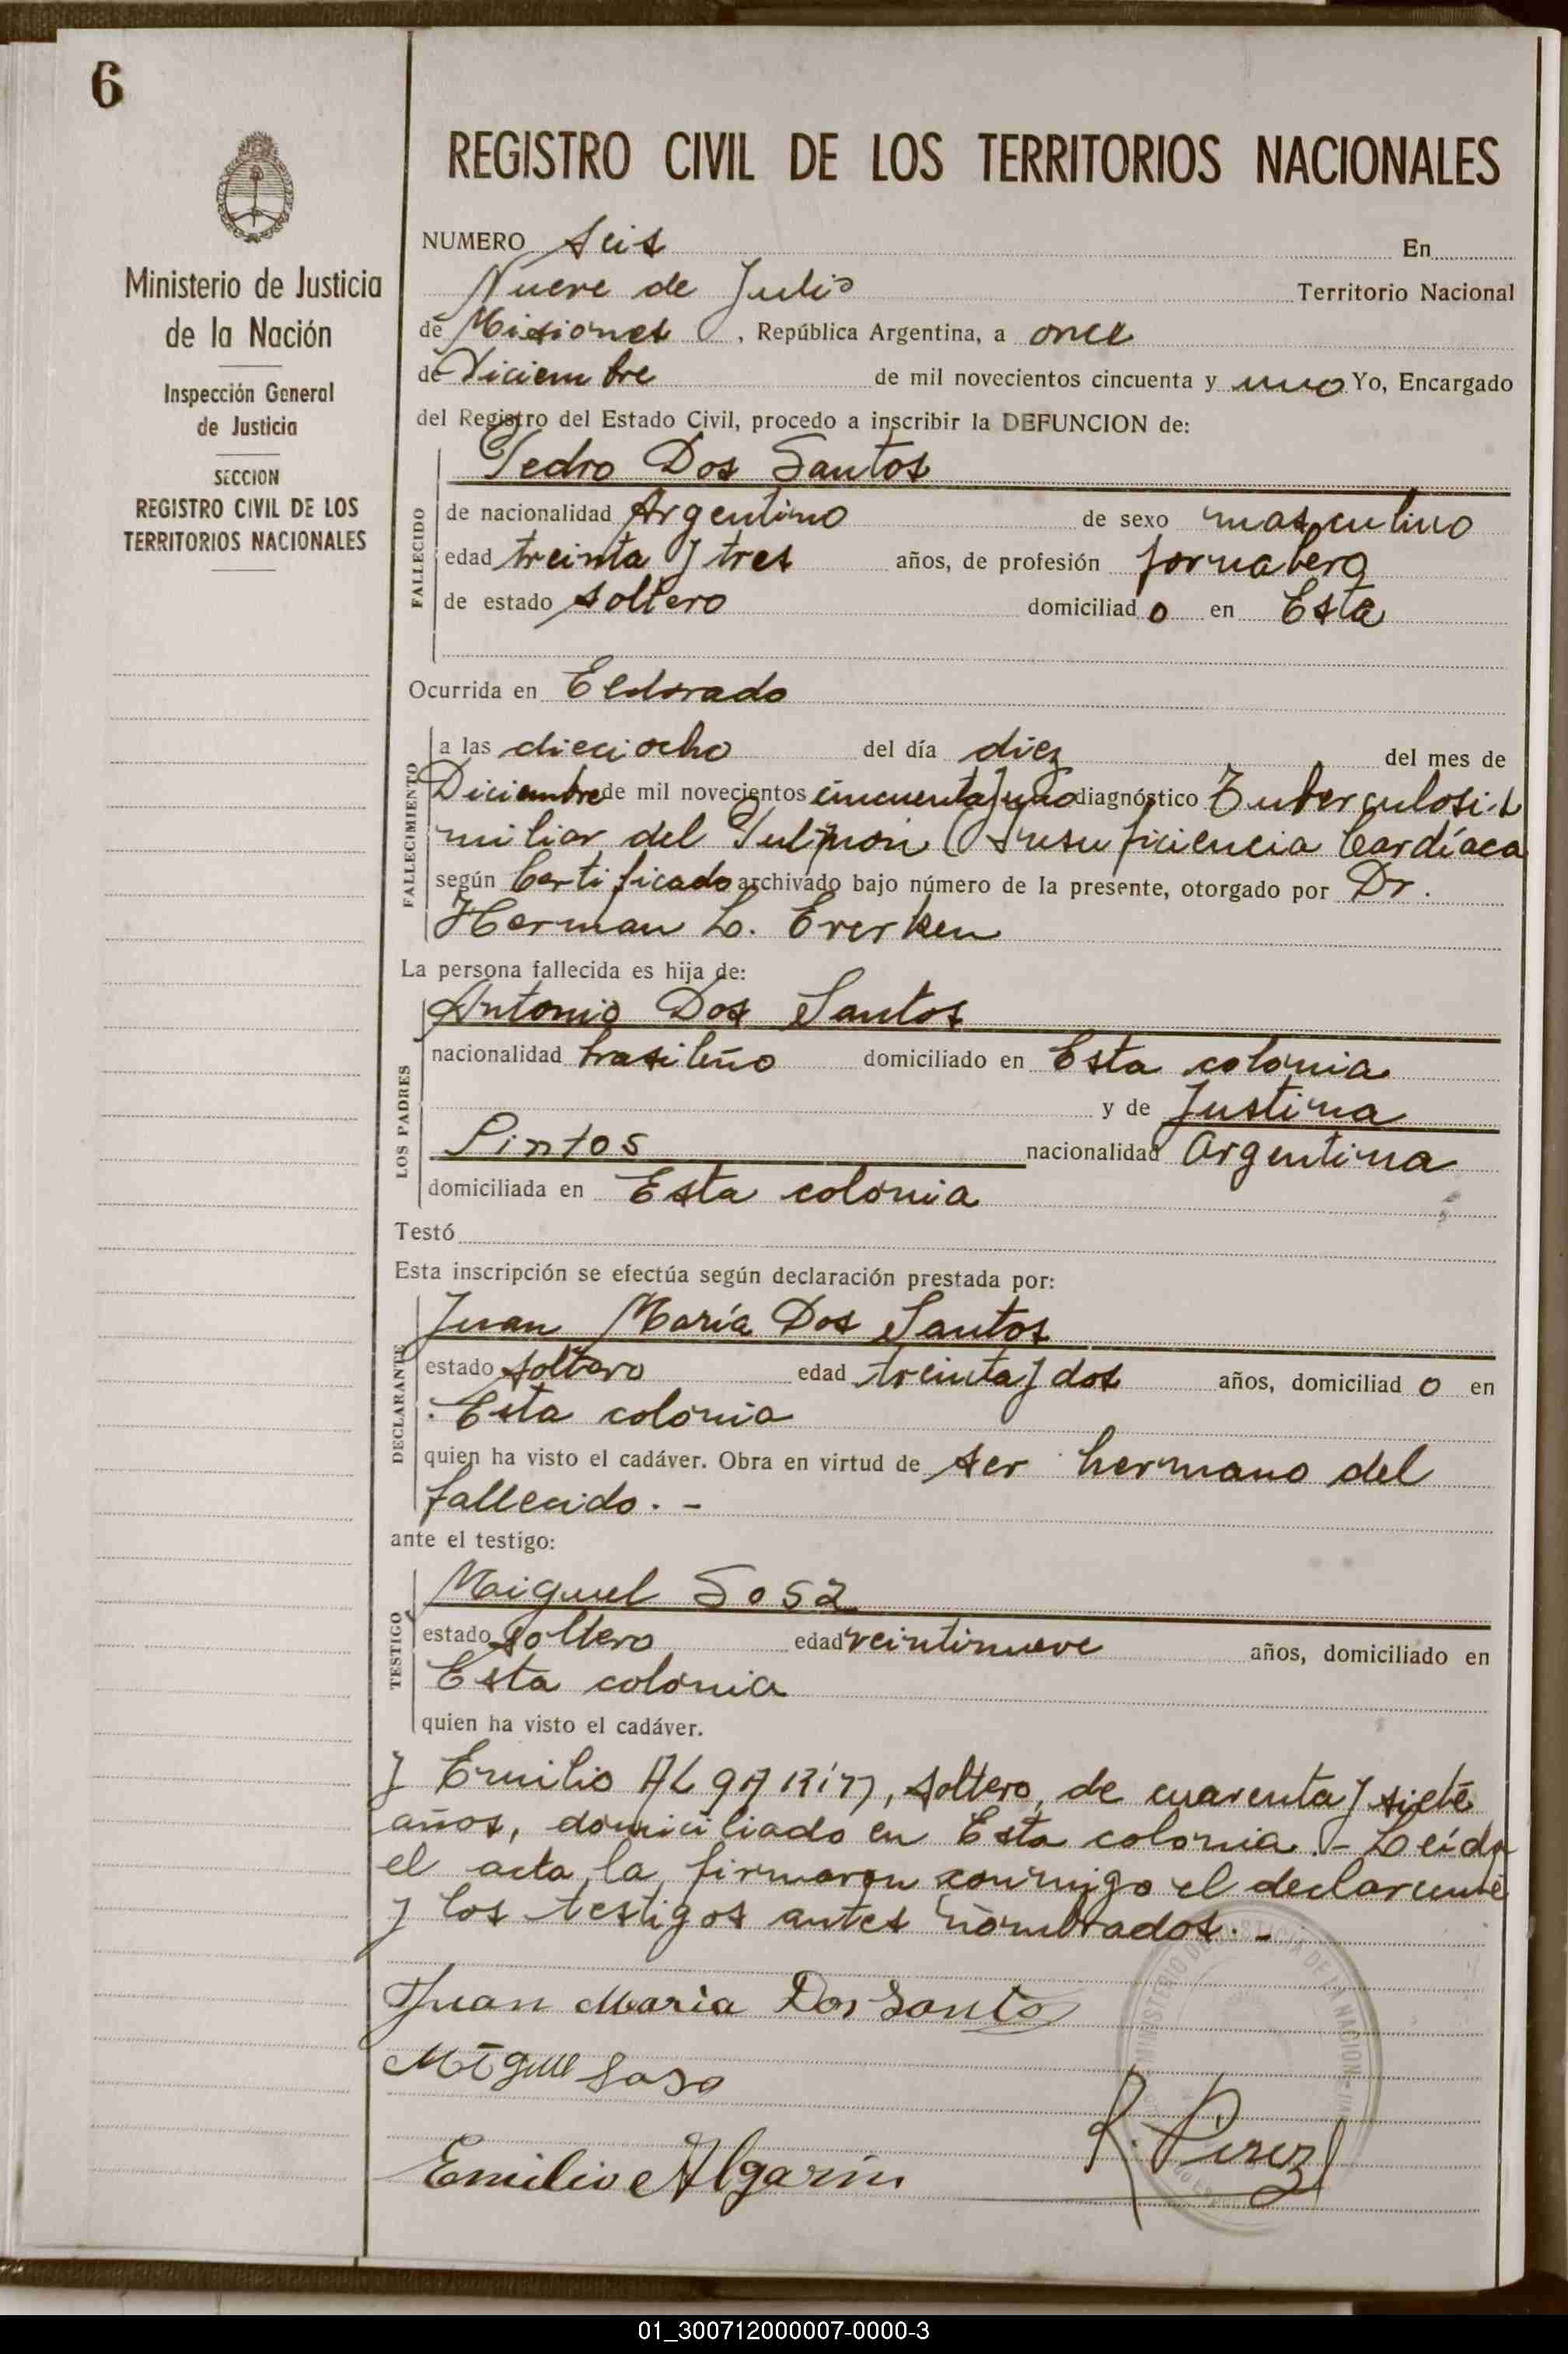 6
Ministerio de Justicia
de la Nación
Inspección General
de Justicia
SECCION
REGISTRO CIVIL DE LOS
TERRITORIOS NACIONALES
REGISTRO CIVIL DE LOS TERRITORIOS NACIONALES
NUMERO Seis En
Nueve de Julio Territorio Nacional
de Misiones, República Argentina, a once
de Diciembre de mil novecientos cincuenta y uno Yo, Encargado
del Registro del Estado Civil, procedo a inscribir la DEFUNCION de:
Pedro Dos Santos
FALLECIDO
de nacionalidad Argentino de sexo masculino
edad treinta y tres años, de profesión jornalero
de estado soltero domiciliado en Esta
Ocurrida en Eldorado
FALLECIMIENTO
a las dieciocho del día diez del mes de
Diciembre de mil novecientos cincuenta y uno diagnóstico Tuberculosis
miliar del Pulmón Insuficiencia Cardíaca
según Certificado archivado bajo número de la presente, otorgado por Dr.
Herman L.
La persona fallecida es hija de:
LOS PADRES
Antonio Dos Santos
nacionalidad brasileño domiciliado en Esta colonia
y de Justina
Pintos nacionalidad Argentina
domiciliada en Esta colonia
Testó
Esta inscripción se efectúa según declaración prestada por:
DECLARANTE
Juan María Dos Santos
estado soltero edad treinta y dos años, domiciliado en
Esta colonia
quien ha visto el cadáver. Obra en virtud de ser hermano del
fallecido. -
ante el testigo:
TESTIGO
Miguel Sosa
estado soltero edad veintinueve años, domiciliado en
Esta colonia
quien ha visto el cadáver.
y Emilio ALgARÍN, soltero, de cuarenta y siete
años, domiciliado en Esta colonia. - Leída
el acta, la firmaron conmigo el declarante
y los testigos antes nombrados. -
Juan Maria Dos Santo
Miguel Sosa
Emilio Algarin
R. Perez
MINISTERIO DE JUSTICIA DE LA NACION
01_300712000007-0000-3